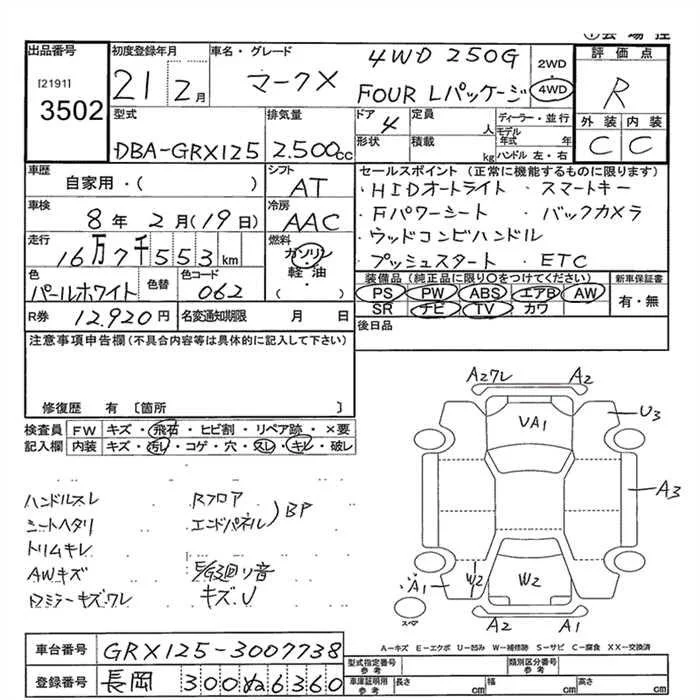 出品番号 初度登録年月 車名・グレード 評価点
[2191]
3502
21 2月 マークX 4WD 250G
FOUR Lパッケージ
2WD
4WD
R
外装 内装
C C
型式 排気量 ドア 定員 人 ディーラー・並行
DBA-GRX125 2.500cc 4 形状 積載 kg モデル年式 年
ハンドル 左・右
車歴 自家用・( ) シフト AT
セールスポイント (正常に機能するものに限ります)
・HIDオートライト ・スマートキー
・Fパワーシート ・バックカメラ
・ウッドコンビハンドル
・プッシュスタート ・ETC
車検 8年2月(19日) 冷房 AAC
走行 16万7千553km 燃料 ガソリン
軽・油
( )
色 パールホワイト 色替 色コード 062
装備品 (純正品に限り○をつけてください) 新車保証書
PS PW ABS エアB AW 有・無
SR ナビ TV カワ
R券 12.920円 名変通知期限 月 日
後日品
注意事項申告欄(不具合内容等は具体的に記入して下さい)
修復歴 有 〔箇所 〕
検査員 FW キズ・飛石・ヒビ割・リペア跡・×要
記入欄 内装 キズ・汚レ・コゲ・穴・スレ・キレ・破レ
ハンドルスレ Rフロア
シートヘタリ エンドパネル)BP
トリムキレ
AWキズ 回リ音
Dミラーキズワレ キズ.U
A2ワレ A2
UA1 U3
A3
A1 W2 W2
スペア
A2 A1
A-キズ E-エクボ U-凹み W-補修跡 S-サビ C-腐食 XX-交換済
車台番号 GRX125-3007738
登録番号 長岡 300ぬ6360
型式指定番号 参考 類別区分番号 参考
車庫証明用 参考 長さ cm 幅 cm 高さ cm